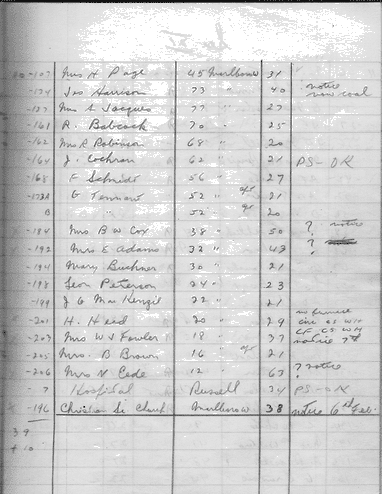 -107 Mrs H. Page 45 Marlboro 31
-134 Jas Harrison 73 " 40 notice new coal
-137 Mrs L Jacques 77 " 27
-161 R. Babcock 70 " 25
-162 Mrs R Robinson 68 " 20
-164 J. Cochran 62 " 21 PS-OK
-168 F Schmidt 56 " 27
-173A G Tennant 52 " 21
B " 52 " 20
-184 Mrs B W Cox 38 " 50 ? notice
-192 Mrs E Adams 32 " 43 ?
-194 Mary Buchner 30 " 21
-198 Leon Peterson 24 " 23
-199 J G MacKenzie 22 " 21
-201 H. Head 20 " 29 no furnace
-203 Mrs W J Fowler 18 " 37 notice 7th
-205 Mrs. B Brown 16 " 21
-206 Mrs N. Cede 12 " 63 ? notice
- 7 Hospital Russell 34 PS-OK
-196 Christian Sc Church Marlboro 38 notice 6th Feb.
39
+ 10